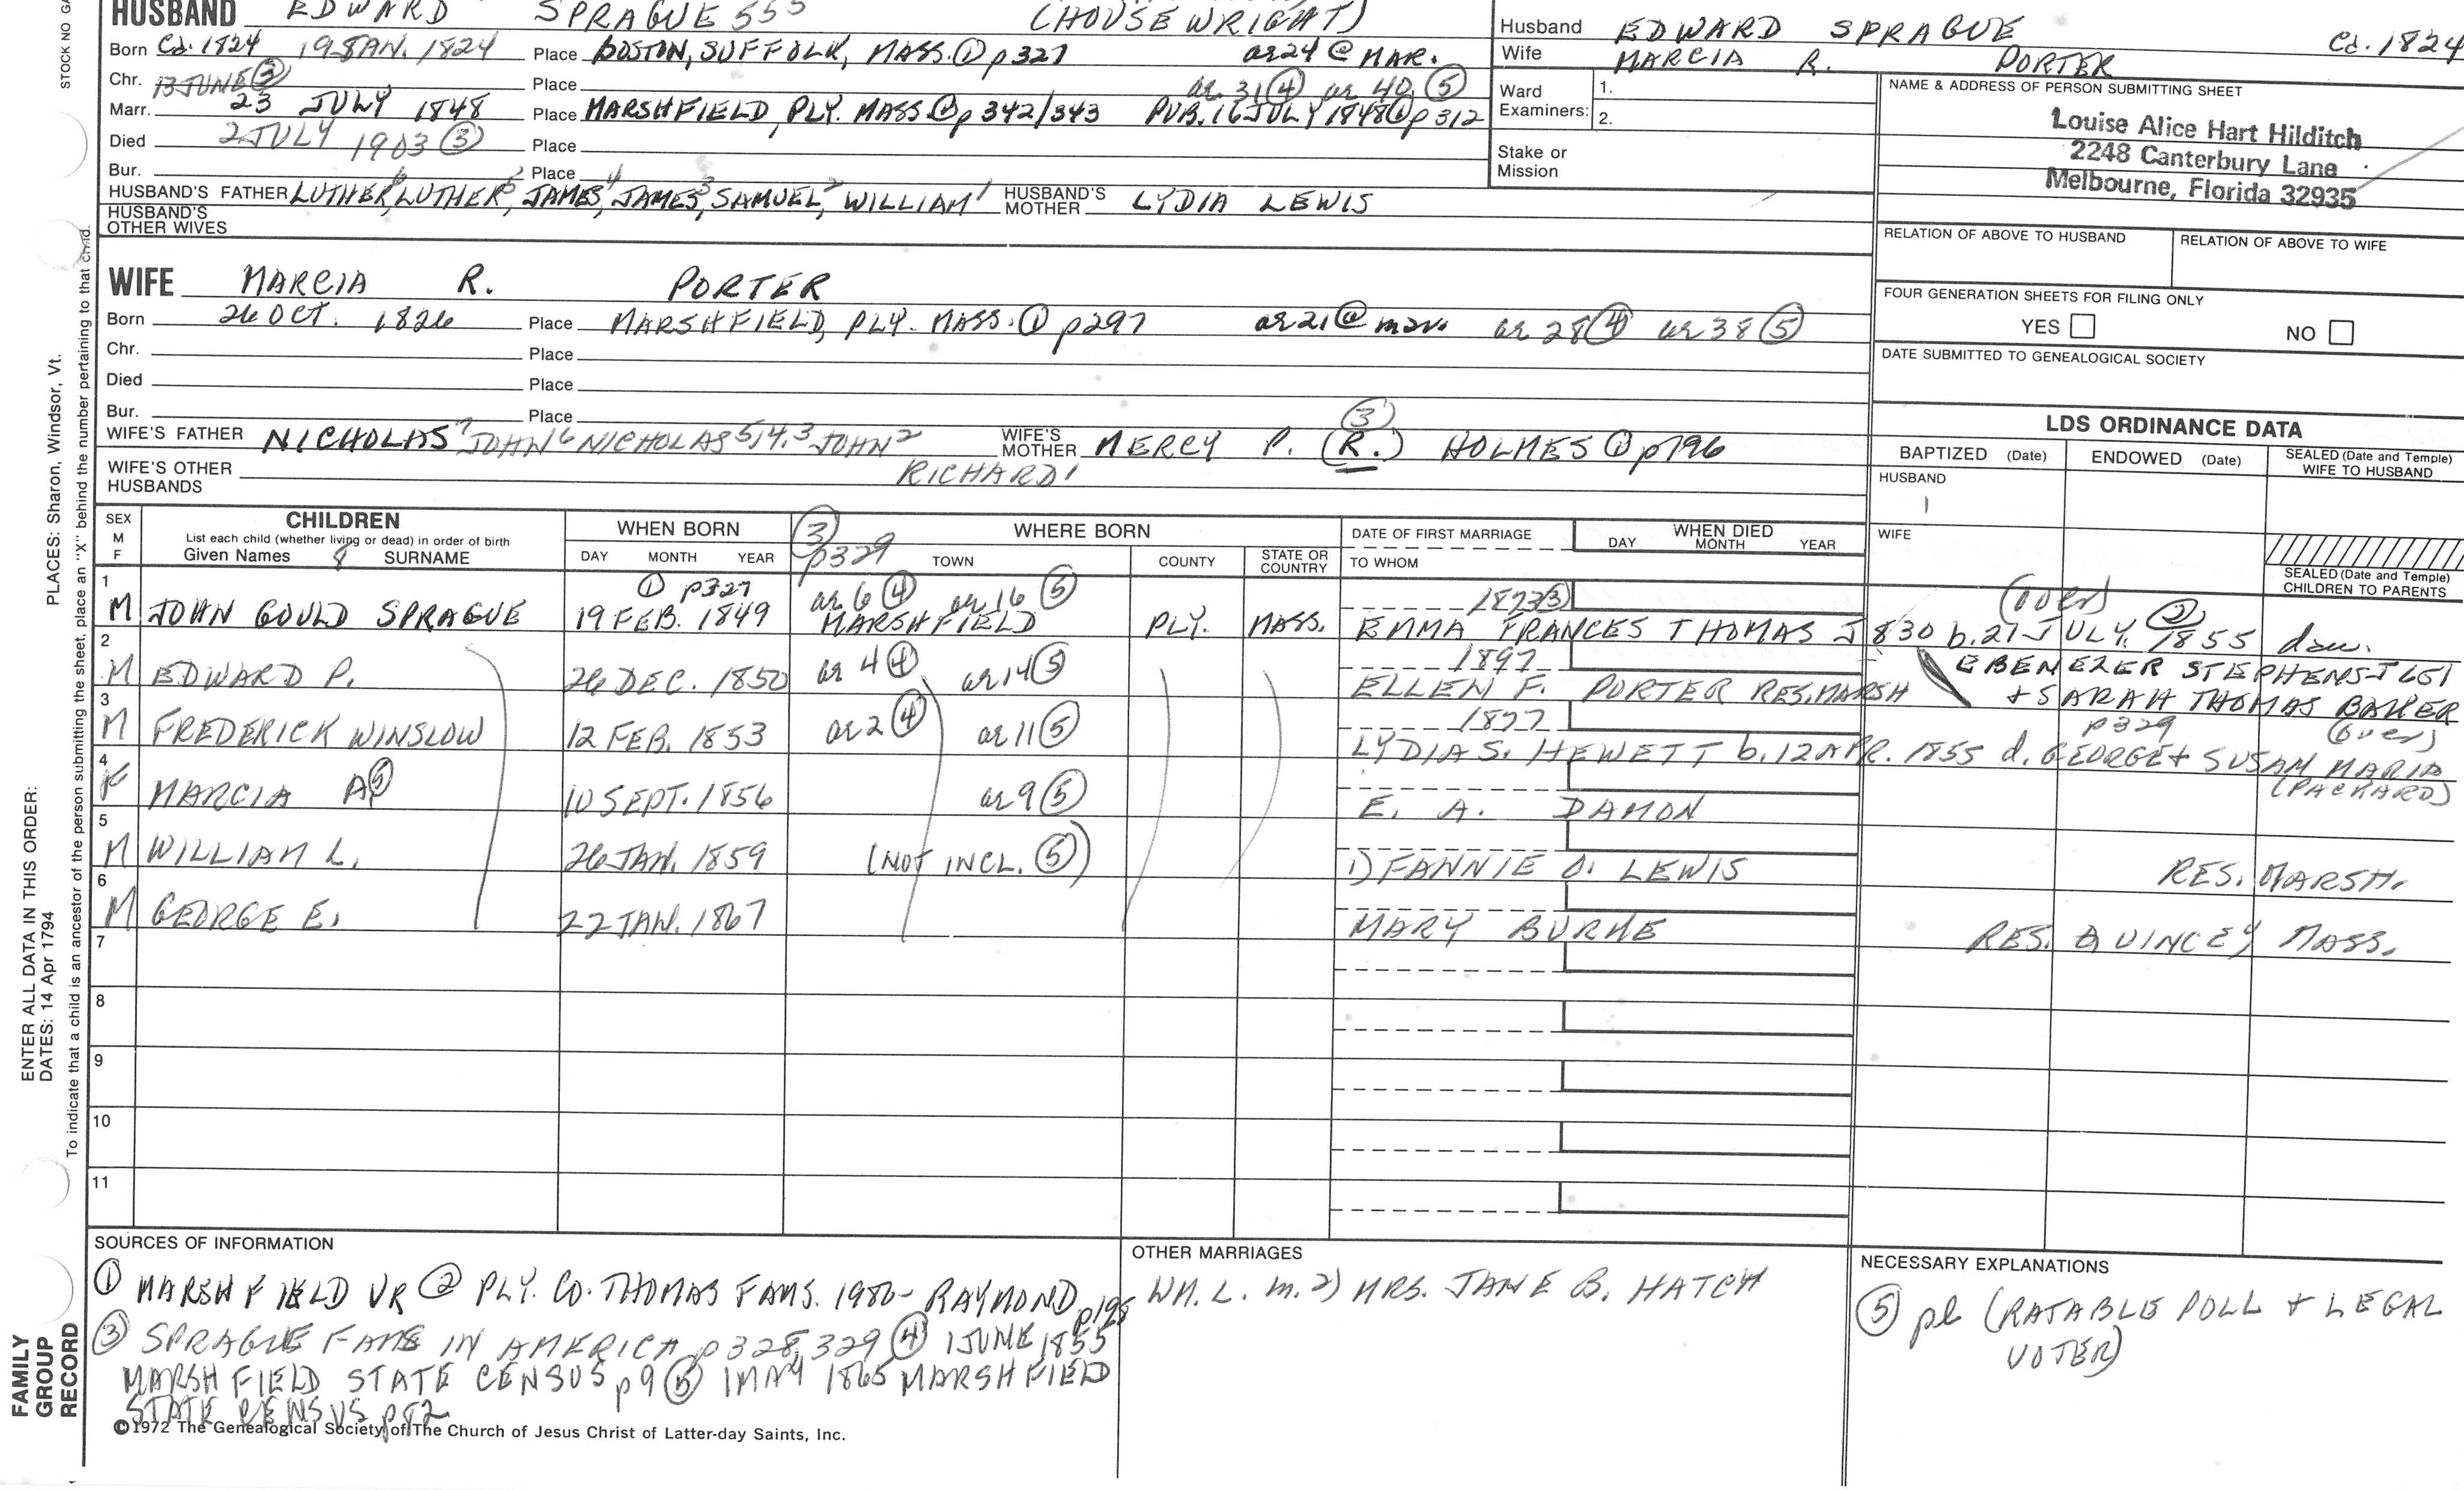 HUSBAND EDWARD SPRAGUE 555 (HOUSEWRIGHT)
Born Ca. 1824 19 JAN. 1824 Place BOSTON, SUFFOLK, MASS. ① p327 ae24 @ MAR.
Chr. 13 JUNE ③ Place ae 31 ④ ae 40 ⑤
Marr. 23 JULY 1848 Place MARSHFIELD, PLY. MASS. ① p 342/343 PUB. 16 JULY 1848 ① p312
Died 2 JULY 1903 ③ Place
Bur. Place
HUSBAND'S FATHER LUTHER⁶, LUTHER⁵, JAMES⁴, JAMES³, SAMUEL², WILLIAM¹ HUSBAND'S MOTHER LYDIA LEWIS
HUSBAND'S OTHER WIVES
Husband EDWARD SPRAGUE Ca. 1824
Wife MARCIA R. PORTER
Ward Examiners: 1.
2.
Stake or Mission
NAME & ADDRESS OF PERSON SUBMITTING SHEET
Louise Alice Hart Hilditch
2248 Canterbury Lane
Melbourne, Florida 32935
RELATION OF ABOVE TO HUSBAND RELATION OF ABOVE TO WIFE
FOUR GENERATION SHEETS FOR FILING ONLY
YES NO
DATE SUBMITTED TO GENEALOGICAL SOCIETY
WIFE MARCIA R. PORTER
Born 26 OCT. 1826 Place MARSHFIELD, PLY. MASS. ① p297 ae21 @ mar. ae 28 ④ ae 38 ⑤
Chr. Place
Died Place
Bur. Place
WIFE'S FATHER NICHOLAS⁷ JOHN⁶ NICHOLAS⁵,⁴,³ JOHN² RICHARD¹ WIFE'S MOTHER MERCY P. (R.) ③ HOLMES ① p796
WIFE'S OTHER HUSBANDS
LDS ORDINANCE DATA
BAPTIZED (Date) ENDOWED (Date) SEALED (Date and Temple) WIFE TO HUSBAND
HUSBAND
1
WIFE
SEALED (Date and Temple) CHILDREN TO PARENTS
SEX M F CHILDREN WHEN BORN ③ p329 WHERE BORN DATE OF FIRST MARRIAGE WHEN DIED
List each child (whether living or dead) in order of birth
Given Names 8 SURNAME DAY MONTH YEAR TOWN COUNTY STATE OR COUNTRY TO WHOM DAY MONTH YEAR
① p327 ae 6 ④ ae 16 ⑤ 1873 ③ (over)
1 M JOHN GOULD SPRAGUE 19 FEB. 1849 MARSHFIELD PLY. MASS. EMMA FRANCES THOMAS J830 b. 21 JULY 1855 ② dau.
EBENEZER STEPHENS J651
2 M EDWARD P. 26 DEC. 1850 ae 4 ④ ae 14 ⑤ 1897 ELLEN F. PORTER RES. MARSH
+ SARAH THOMAS BAKER
p329 (over)
3 M FREDERICK WINSLOW 12 FEB. 1853 ae 2 ④ ae 11 ⑤ 1877 LYDIA S. HEWETT b. 12 APR. 1855 d. GEORGE + SUSAN MARIA (PACKARD)
4 F MARCIA A ⑤ 10 SEPT. 1856 ae 9 ⑤ E. A. DAMON
5 M WILLIAM L. 26 JAN. 1859 (NOT INCL. ⑤) 1) FANNIE O. LEWIS RES. MARSH.
6 M GEORGE E. 22 JAN. 1867 MARY BURKE RES. QUINCEY MASS.
7
8
9
10
11
SOURCES OF INFORMATION
① MARSHFIELD VR ② PLY. CO. THOMAS FAMS. 1980- RAYMOND p195
③ SPRAGUE FAMS IN AMERICA p328, 329 ④ 1 JUNE 1855
MARSHFIELD STATE CENSUS p9 ⑤ 1 MAY 1865 MARSHFIELD
STATE CENSUS p82
OTHER MARRIAGES
WM. L. m. 2) MRS. JANE B. HATCH
NECESSARY EXPLANATIONS
⑤ pl (RATABLE POLL + LEGAL
VOTER)
©1972 The Genealogical Society of The Church of Jesus Christ of Latter-day Saints, Inc.
STOCK NO
PLACES: Sharon, Windsor, Vt.
ENTER ALL DATA IN THIS ORDER:
DATES: 14 Apr 1794
To indicate that a child is an ancestor of the person submitting the sheet, place an "X" behind the number pertaining to that child.
FAMILY
GROUP
RECORD